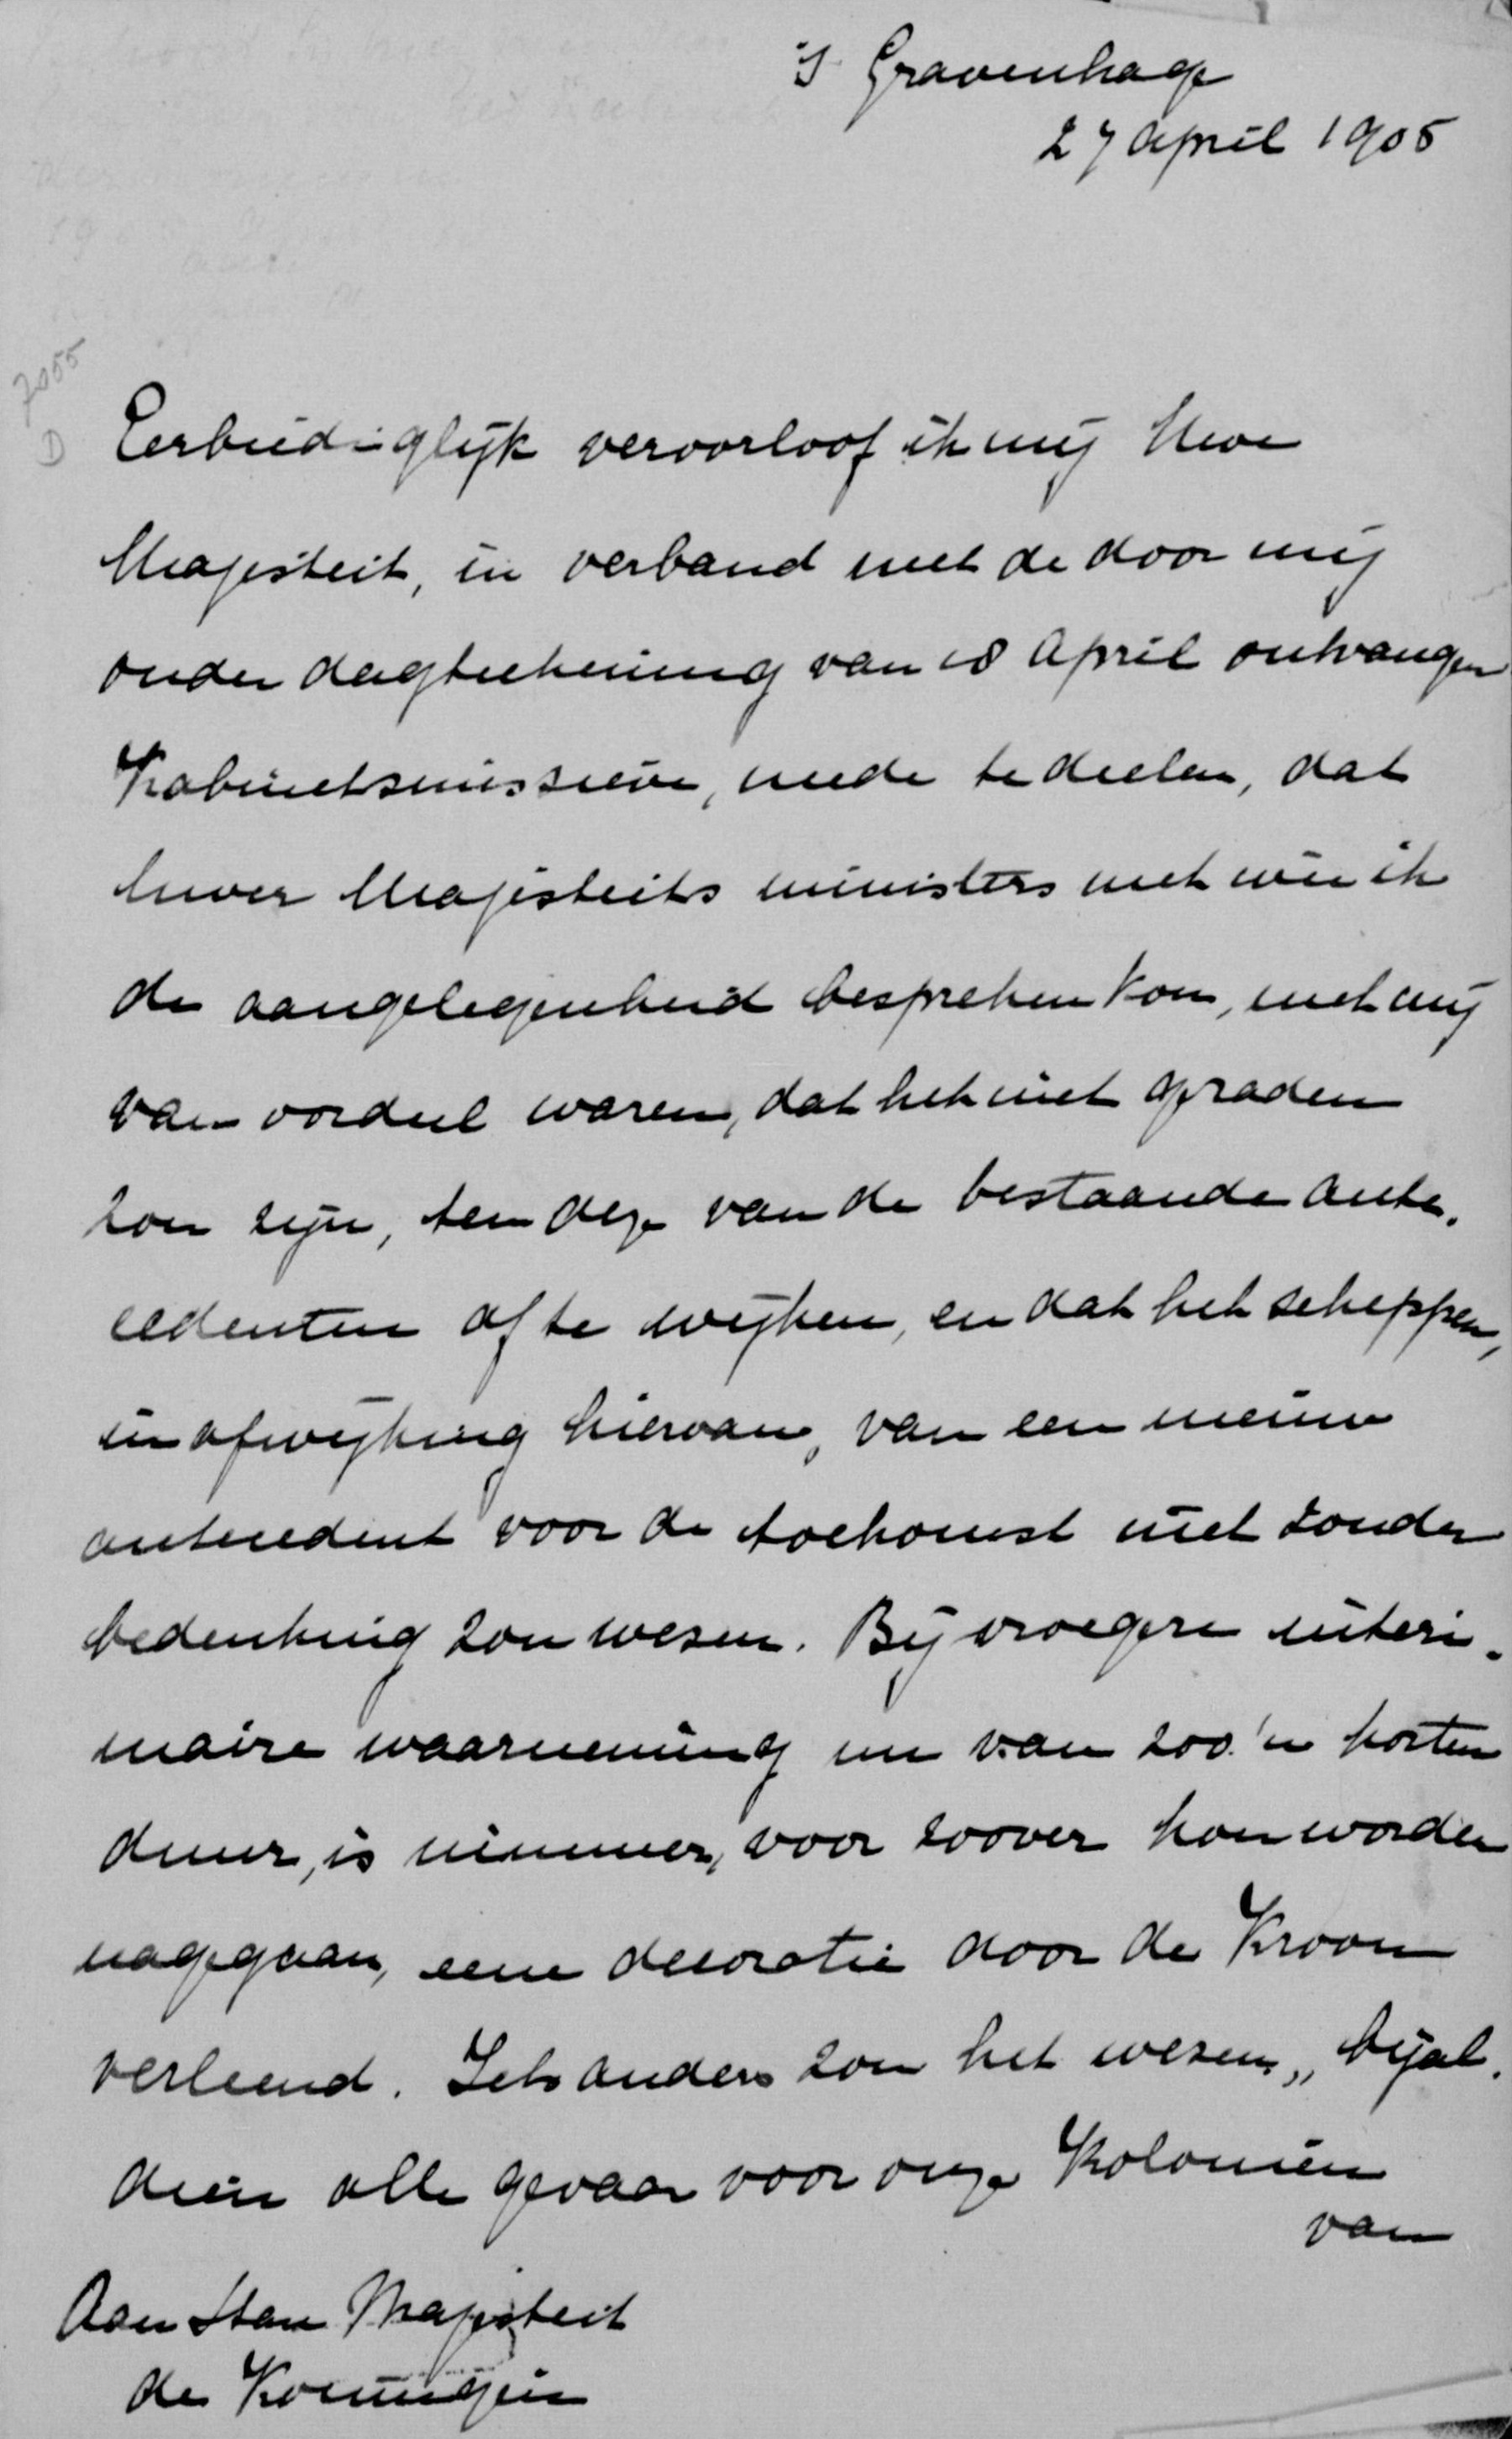 's Gravenhage
27 april 1905
7055
D
Eerbiediglijk veroorloof ik mij Uwe
Majesteit, in verband met de door mij
onder dagteekening van 18 April ontvangen
Kabinetsmissieve, mede te deelen, dat
Uwer Majesteits ministers met wie ik
de aangelegenheid bespreken kon, met mij
van oordeel waren, dat het niet geraden
zou zijn, ten deze van de bestaande ante-
cedenten af te wijken, en dat het scheppen,
in afwijking hiervan, van een nieuw
antecedent voor de toekomst niet zonder
bedenking zou wezen. Bij vroegere interi-
maire waarneming nu van zoo'n korten
duur, is nimmer, voor zoover kon worden
nagegaan, eene decoratie door de Kroon
verleend. Iets anders zou het wezen, bijal-
dien alle gevaar voor onze Koloniën
van
Aan Hare Majesteit
de Koningin